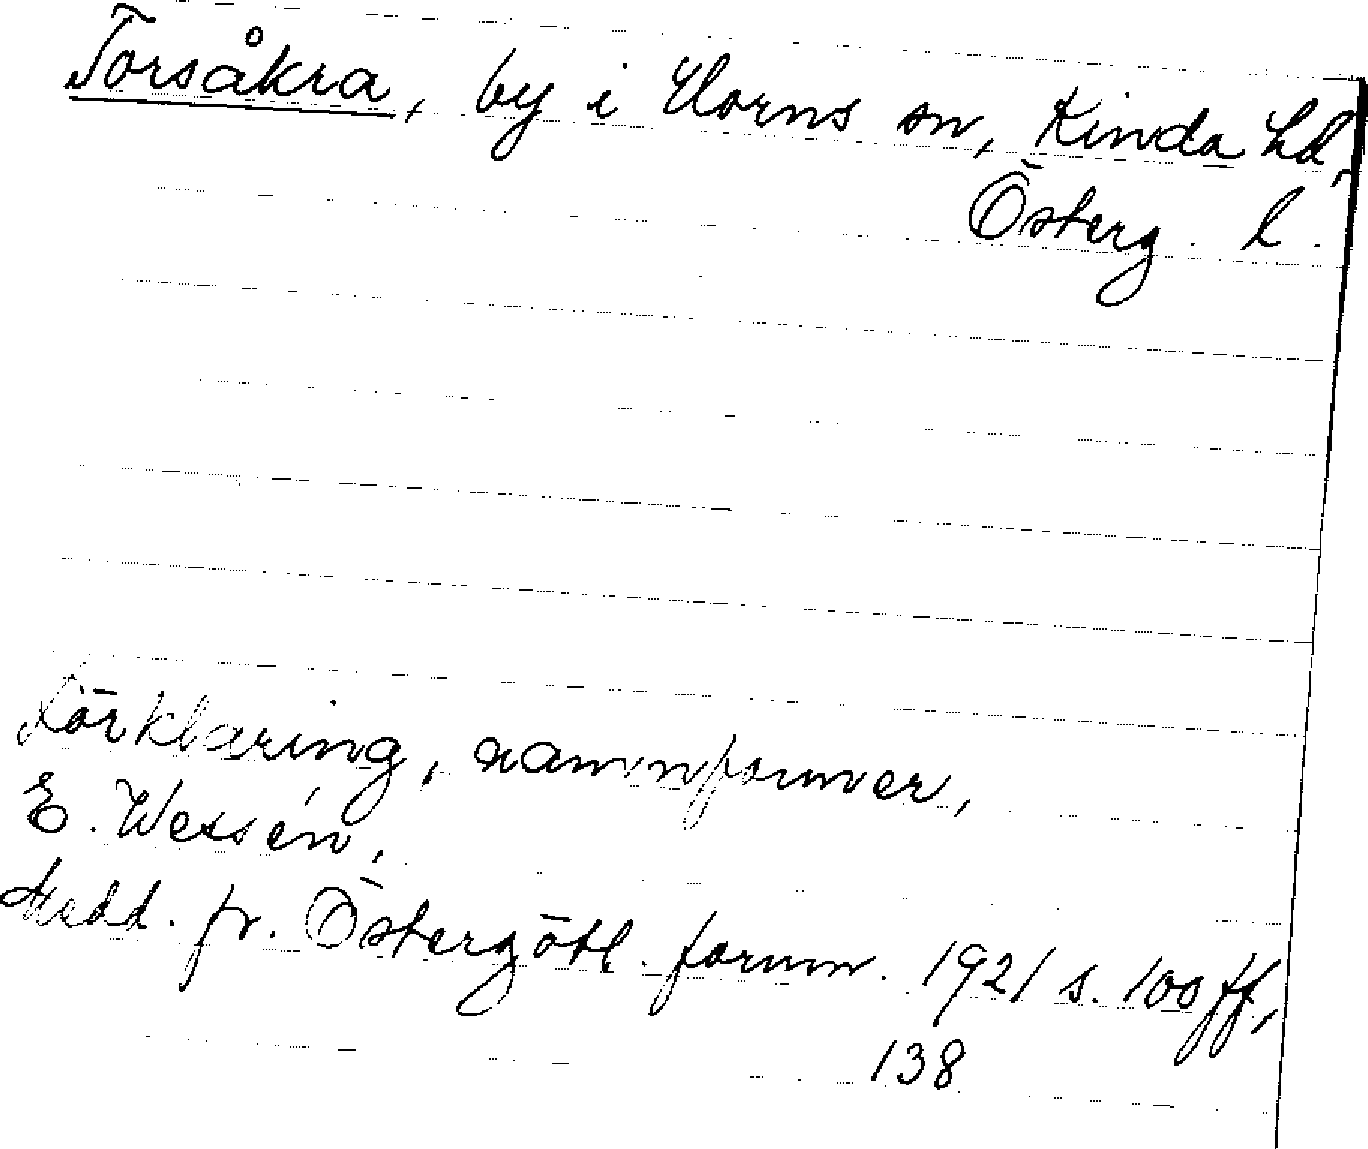 Torsåkra, by i Horns sn, Kinda hd,
Österg. l.
Förklaring, namnformer,
E. Wessén,
Medd. fr. Östergötl. fornm. 1921 s. 100 ff,
138